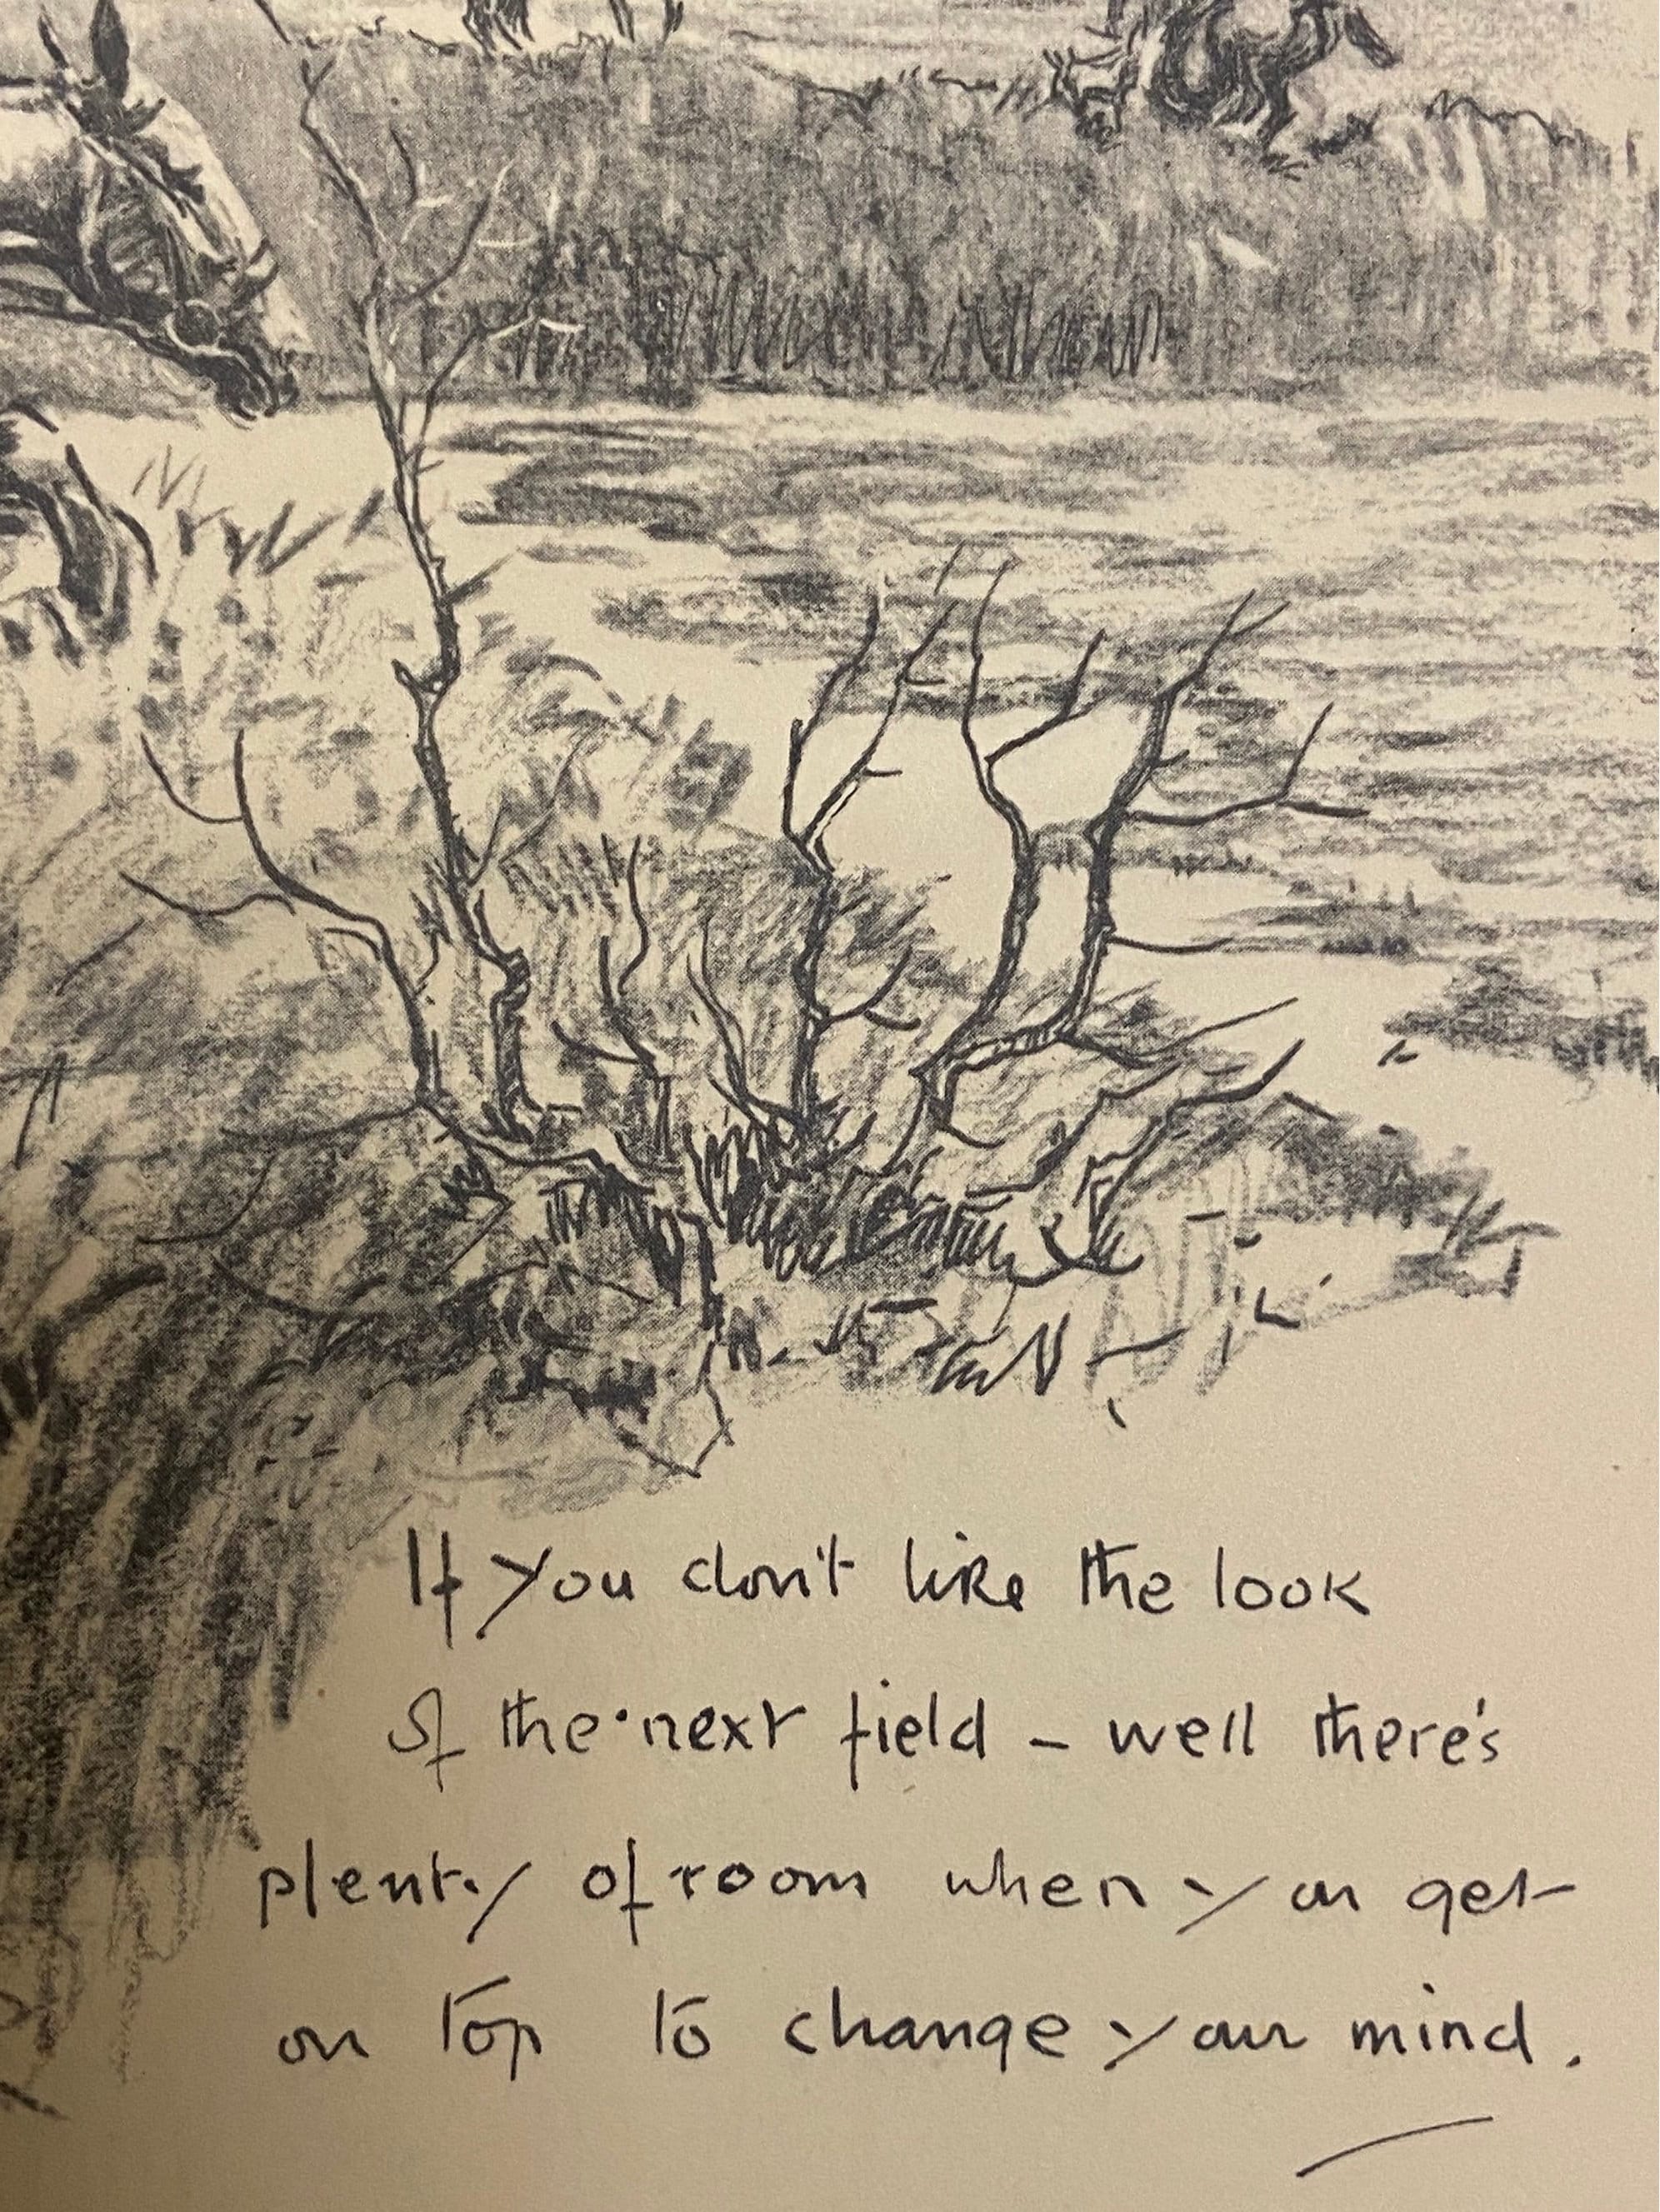 If you don't like the look
of the next field – well there's
plenty of room when you get
on top to change your mind.